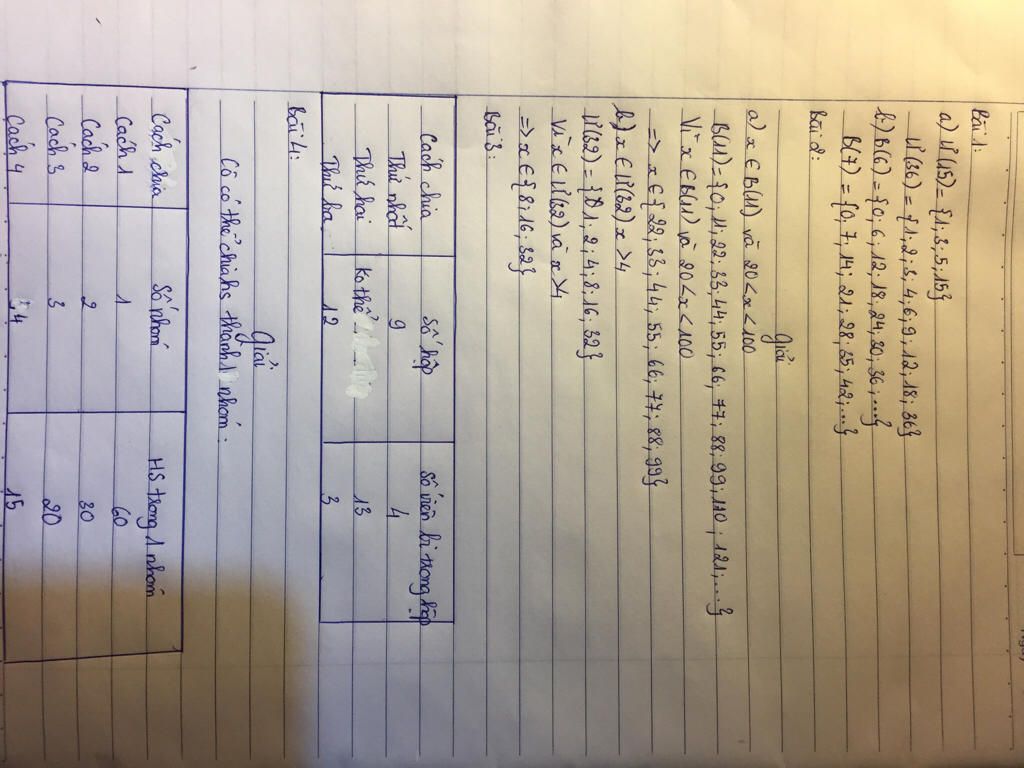 Bài 1:
a) Ư(15) = {1; 3; 5; 15}
Ư(36) = {1; 2; 3; 4; 6; 9; 12; 18; 36}
b) B(6) = {0; 6; 12; 18; 24; 30; 36; ...}
B(7) = {0; 7; 14; 21; 28; 35; 42; ...}
Bài 2:
Giải
a) x ∈ B(11) và 20 < x < 100
B(11) = {0; 11; 22; 33; 44; 55; 66; 77; 88; 99; 110; 121; ...}
Vì x ∈ B(11) và 20 < x < 100
=> x ∈ {22; 33; 44; 55; 66; 77; 88; 99}
b) x ∈ Ư(32) x > 4
Ư(32) = {1; 2; 4; 8; 16; 32}
Vì x ∈ Ư(32) và x > 4
=> x ∈ {8; 16; 32}
Bài 3:
Cách chia Số hộp Số viên bi trong hộp
Thứ nhất 9 4
Thứ hai Ko thể 13
Thứ ba 12 3
Bài 4:
Giải
Cô có thể chia hs thành 1 nhóm:
Cách chia Số nhóm HS trong 1 nhóm
Cách 1 1 60
Cách 2 2 30
Cách 3 3 20
Cách 4 4 15